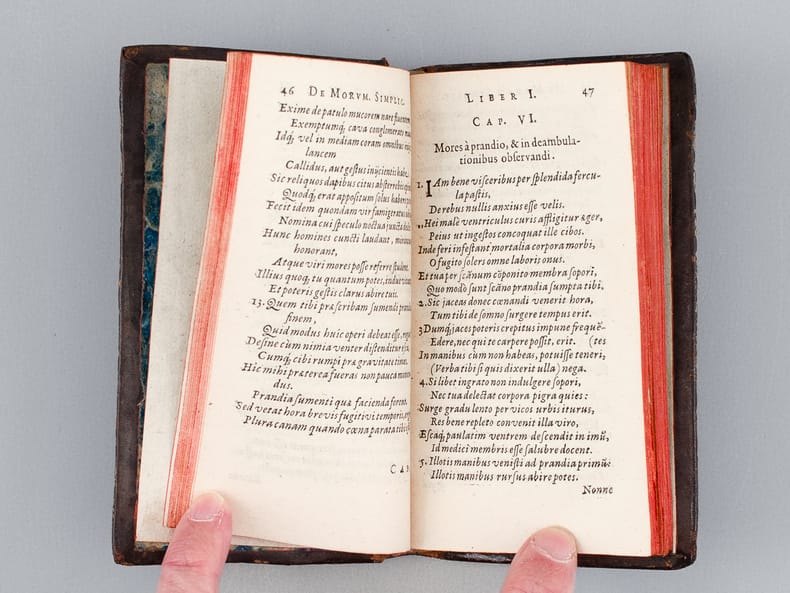 46 DE MORVM. SIMPLIC.
Exime de patulo mucorem nare
Exemptumq́; cava conglomerato
Idq́; vel in mediam coram omnibus
lancem
Callidus, aut gestus inijcientis
Sic reliquos dapibus citus absterrebis
Quodq́; erat appositum solus
Fecit idem quondam vir famigeratus
Nomina cui speculo noctua juncta
Hunc homines cuncti laudant,
honorant,
Atque viri mores posse referre student.
Illius quoq; tu quantum potes,
Et poteris gestis clarus abire tuis.
13. Quem tibi præscribam sumendi prandia
finem,
Quid modus huic operi debeat esse,
Desine cùm nimia venter distenditur
Cumq́; cibi rumpi præ gravitate
Hic mihi præterea fueras non pauca
dus.
Prandia sumenti quæ facienda forent.
Sed vetat hora brevis fugitivi temporis,
Plura canam quando cœna parata tibi
CAP.
LIBER I. 47
CAP. VI.
Mores à prandio, & in deambula-
tionibus observandi.
1. IAm bene visceribus per splendida fercu-
la pastis,
De rebus nullis anxius esse velis.
Hei malè ventriculus curis affligitur æger,
Peius ut ingestos concoquat ille cibos.
Inde feri infestant mortalia corpora morbi,
O fugito solers omne laboris onus.
Et tua per scãnum cõponito membra sopori,
Quo modò sunt scãno prandia sumpta tibi.
2. Sic jaceas donec cœnandi venerit hora,
Tum tibi de somno surgere tempus erit.
3 Dumq́; jaces poteris crepitus impune frequẽ-
Edere, nec qui to carpere possit, erit. (tes
In manibus cùm non habeas, potuisse teneri,
(Verba tibi si quis dixerit ulla) nega.
4. Si libet ingrato non indulgere sopori,
Nec tua delectat corpora pigra quies:
Surge gradu lento per vicos urbis iturus,
Res bene repleto convenit illa viro,
Escaq́; paulatim ventrem descendit in imũ,
Id medici membris esse salubre docent.
5. Illotis manibus venisti ad prandia primùm
Illotis manibus rursus abire potes.
Nonne